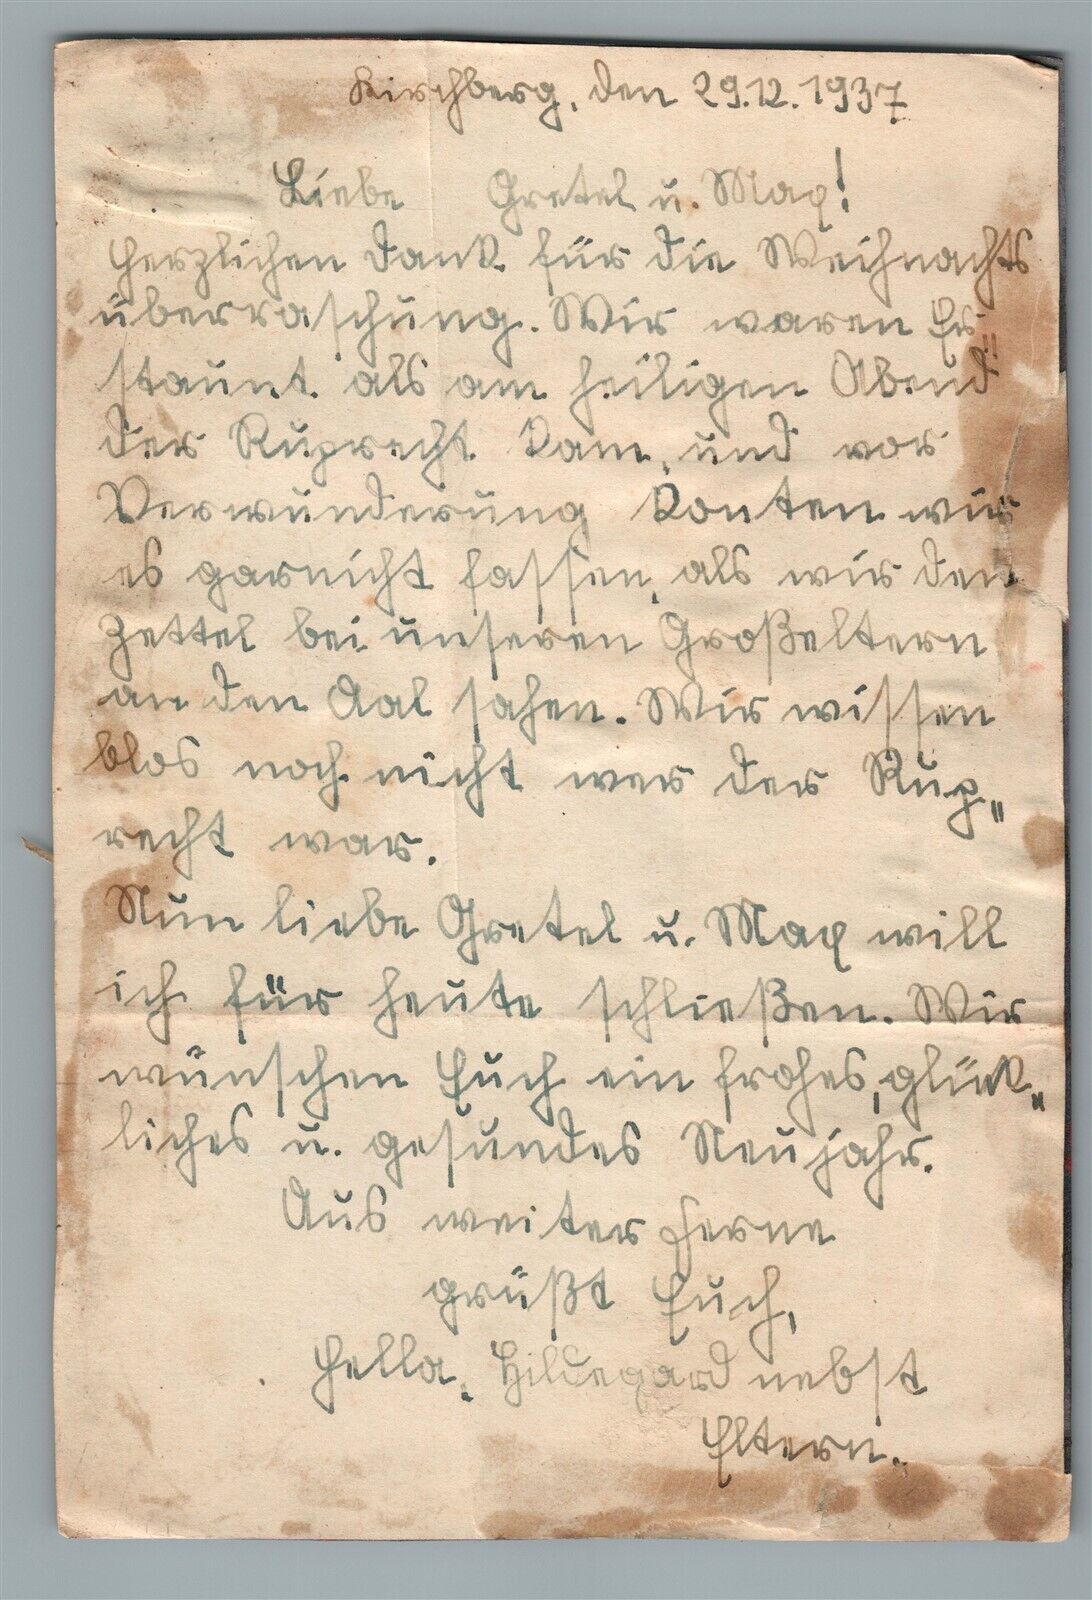 Kirchberg, den 29.12.1937
Liebe Gretel u. Max!
Herzlichen Dank für die Weihnachts
überraschung. Wir waren Er„
staunt als am heiligen Abend
der Ruprecht kam, und vor
Verwunderung konten wir
es garnicht fassen, als wir den
Zettel bei unseren Großeltern
an den Aal sahen. Wir wissen
blos noch nicht wer der Rup„
recht war.
Nun liebe Gretel u. Max will
ich für heute schließen. Wir
wünschen Euch ein frohes, glück„
liches u. gesundes Neujahr.
Aus weiter Ferne
grüßt Euch,
Hella, Hildegard nebst
Eltern.